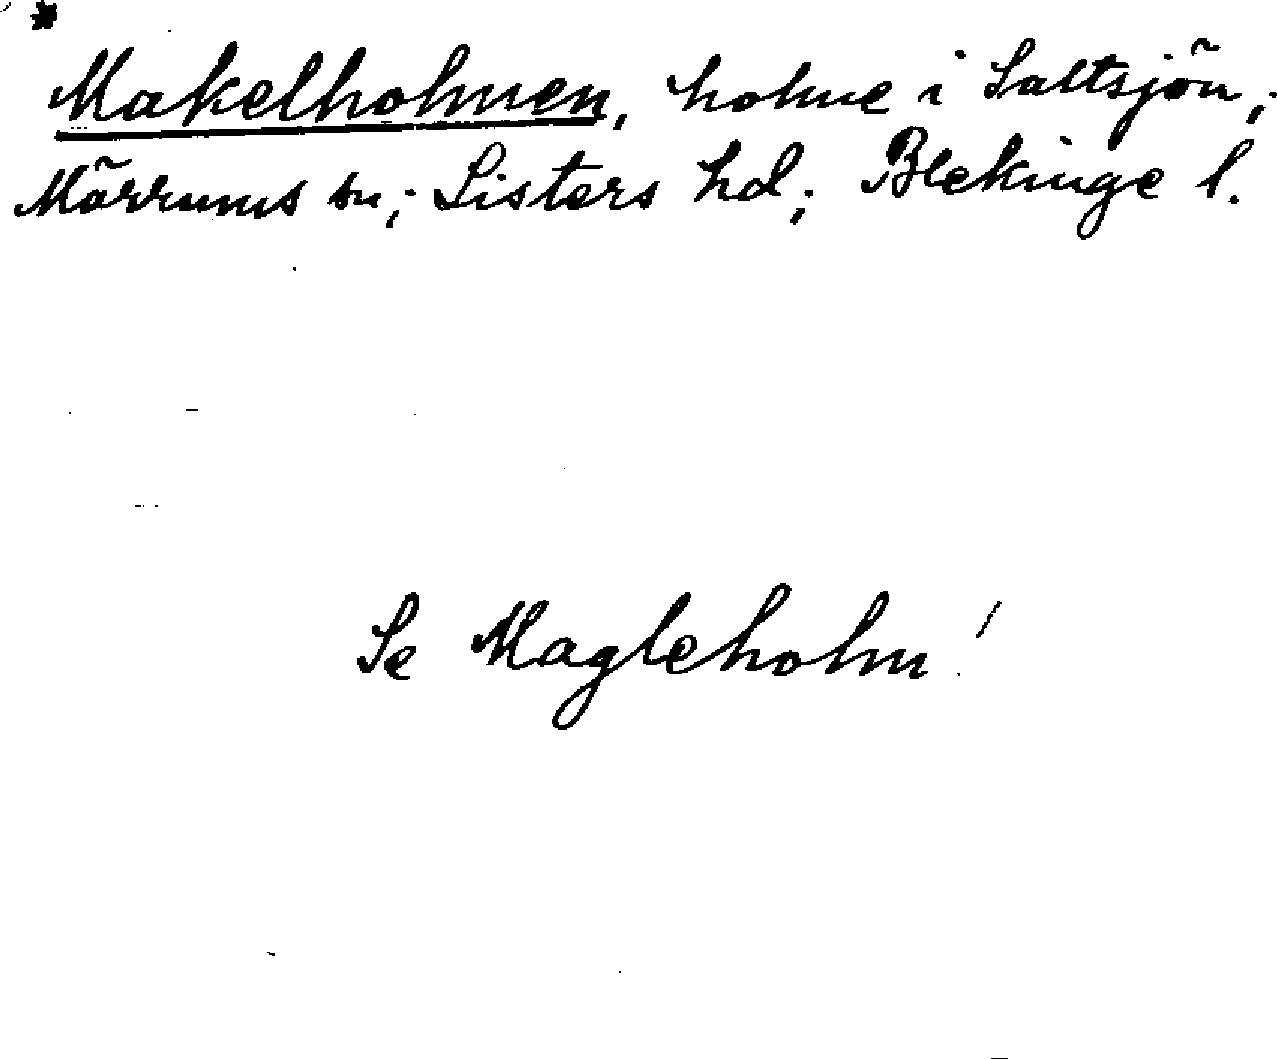 *
Makelholmen, holme i Saltsjön;
Mörrums sn; Listers hd; Blekinge l.
Se Magleholm!